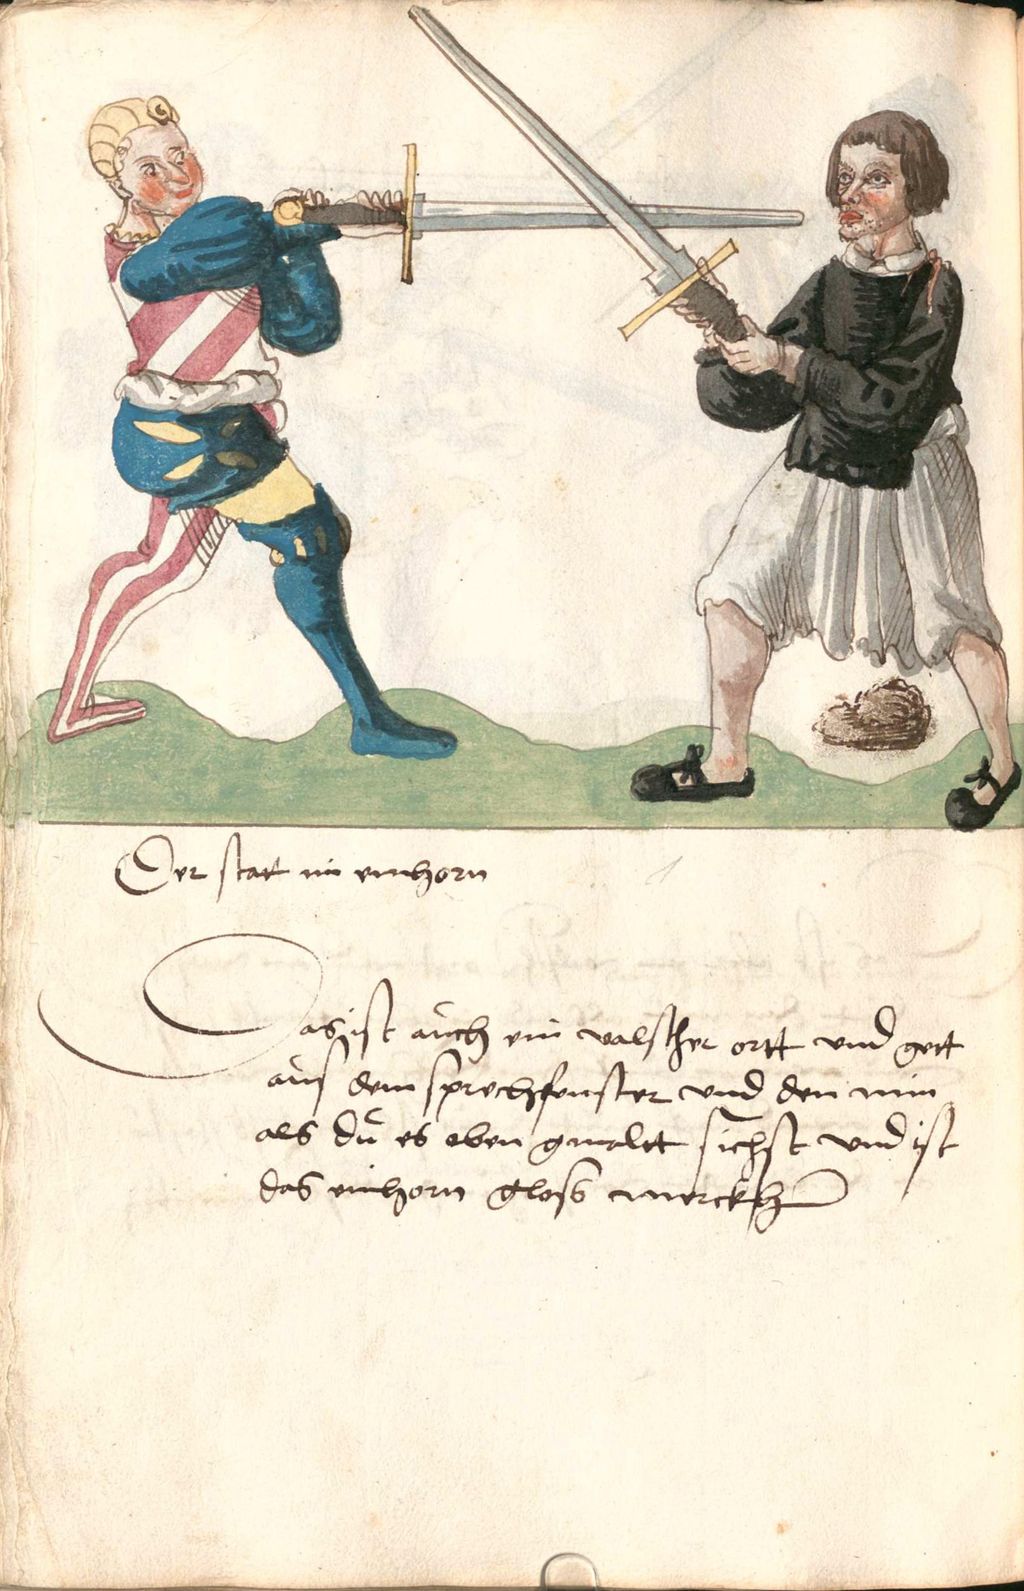 Der statt im einhorn
Das ist auch ein valscher ortt vnd gett
auss dem sprechfenster vnd den nim
als du es oben gmaltt sichst vnd ist
das einhorn gloss merckh